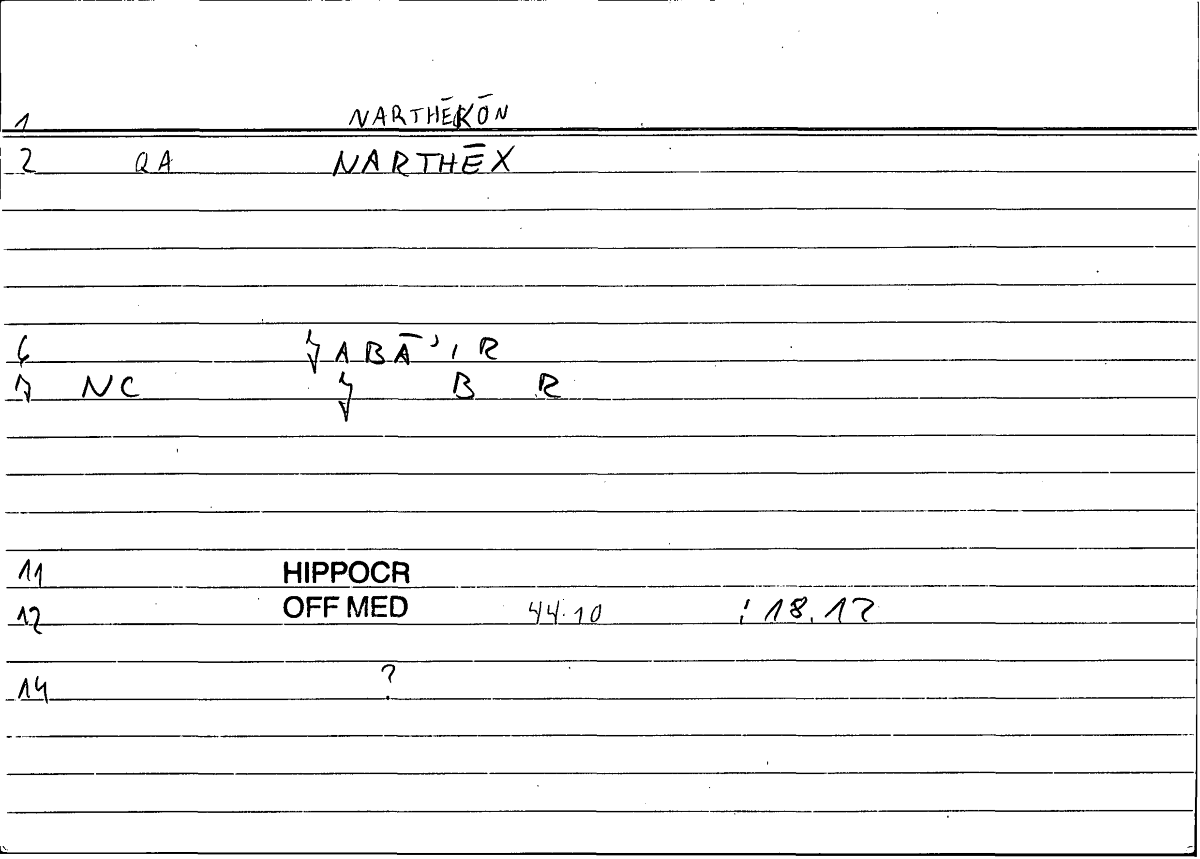 1 NARTHĒKŌN
2 QA NARTHĒX
6 J̌ABĀ'IR
7 NC J̌ B R
11 HIPPOCR
12 OFF MED 44:10 : 18.12
14 ?